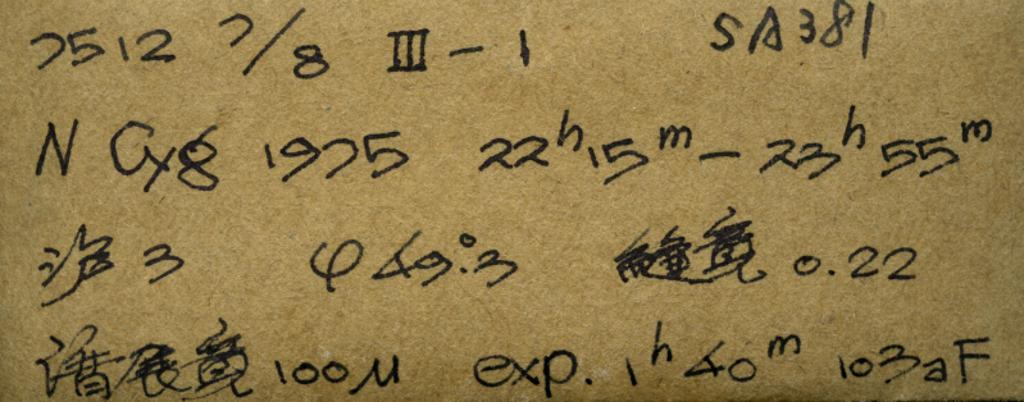 7512 7/8 III-1 SA381
N Cyg 1975 22ʰ15ᵐ-23ʰ55ᵐ
3 φ49°.3 缝宽 0.22
谱展宽 100μ exp. 1ʰ40ᵐ 103aF